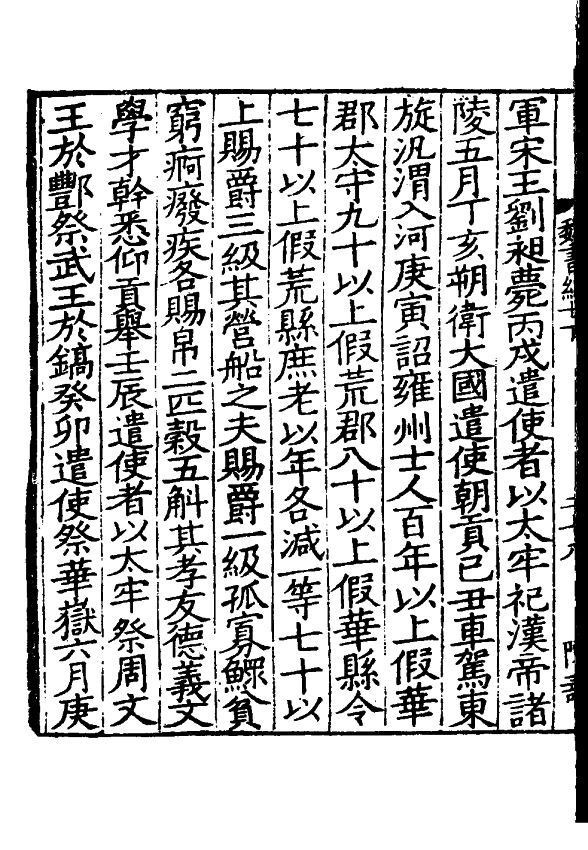 軍宋王劉昶薨丙戌遣使者以太牢祀漢帝諸
陵五月丁亥朔衛大國遣使朝貢己丑車駕東
旋汎渭入河庚寅詔雍州士人百年以上假華
郡太守九十以上假荒郡八十以上假華縣令
七十以上假荒縣庶老以年各減一等七十以
上賜爵三級其營船之夫賜爵一級孤寡鰥貧
窮痾癈疾各賜帛二匹穀五斛其孝友德義文
學才幹悉仰貢舉壬辰遣使者以太牢祭周文
王於酆祭武王於鎬癸卯遣使祭華嶽六月庚